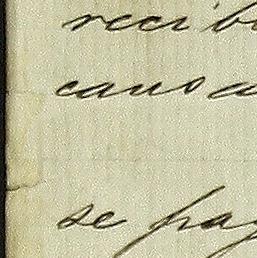 recib
causa
se pag